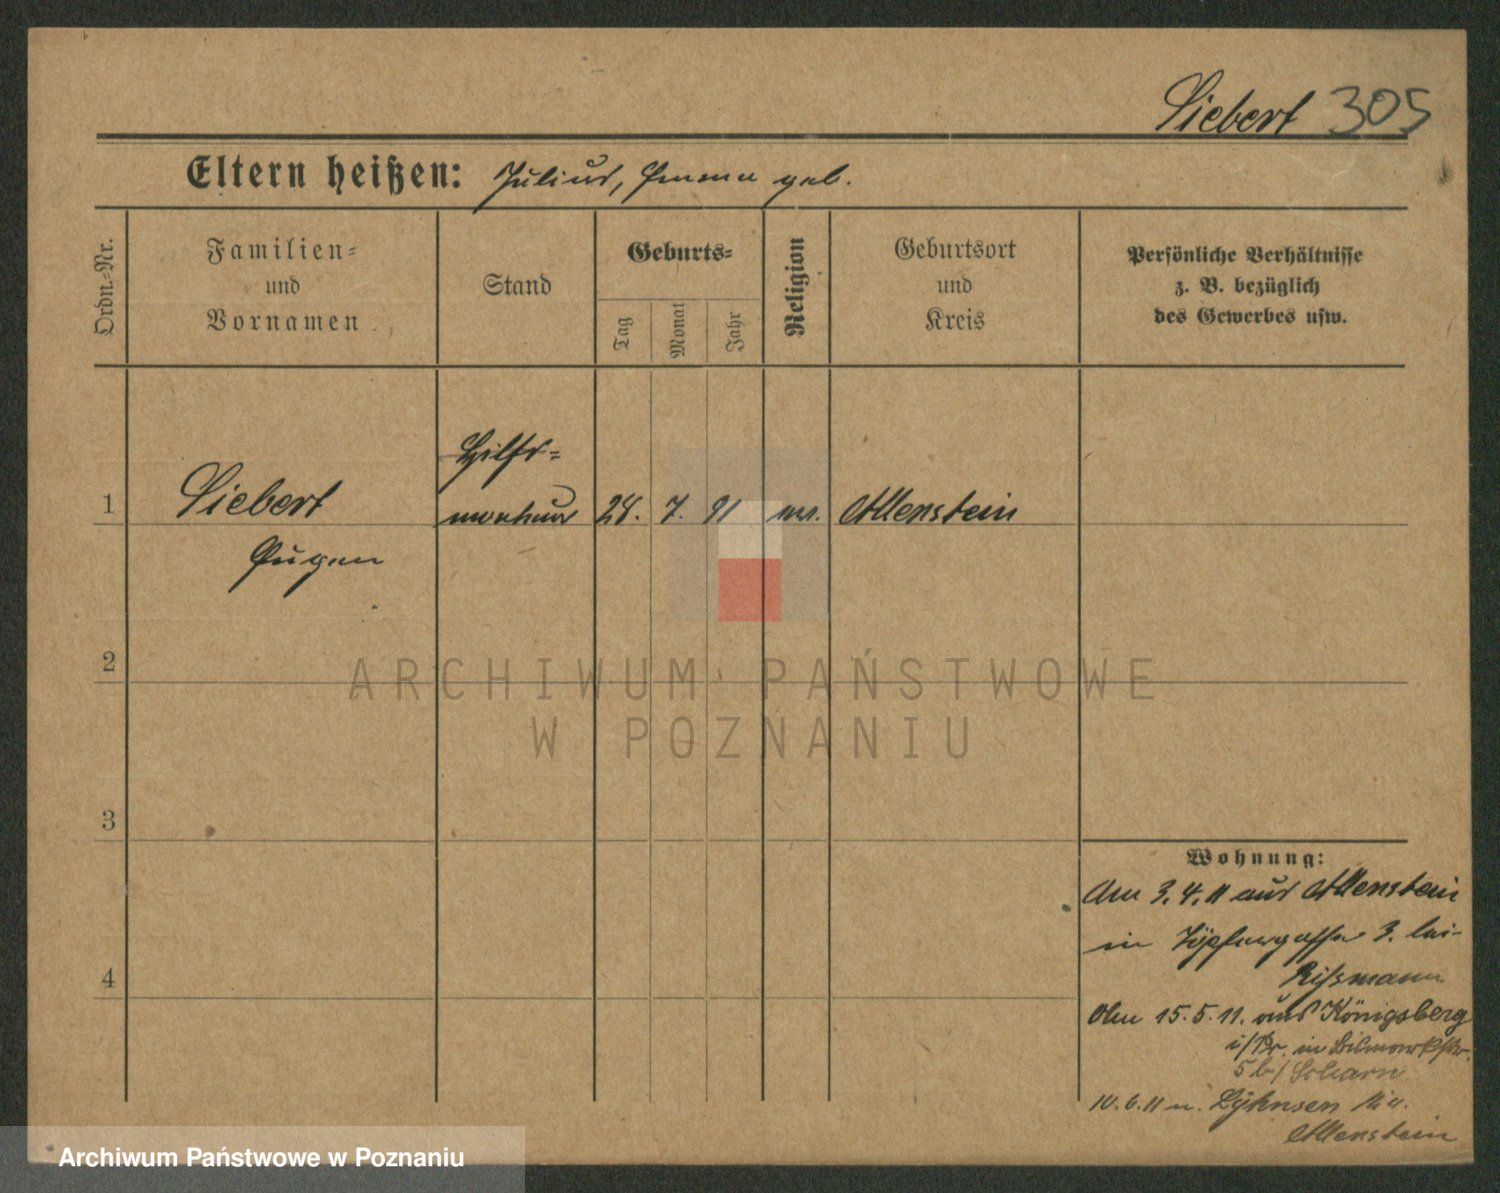 Siebert 305
Eltern heißen: Julius, Emma geb.
Ordn.-Nr.
Familien- und Vornamen
Stand
Geburts-
Tag
Monat
Jahr
Religion
Geburtsort und Kreis
Persönliche Verhältnisse
z. B. bezüglich
des Gewerbes usw.
1
Siebert
Eugen
Hilfs-
monteur
28. 7. 91
ev.
Allenstein
2
3
4
Wohnung:
Am 3.4.11 aus Allenstein
in Töpfergasse 3. bei
Rißmann
Am 15.5.11. aus Königsberg
i/Pr. in Bismarckstr.
5 b/
10.6.11 n.
Allenstein
ARCHIWUM PAŃSTWOWE
W POZNANIU
Archiwum Państwowe w Poznaniu